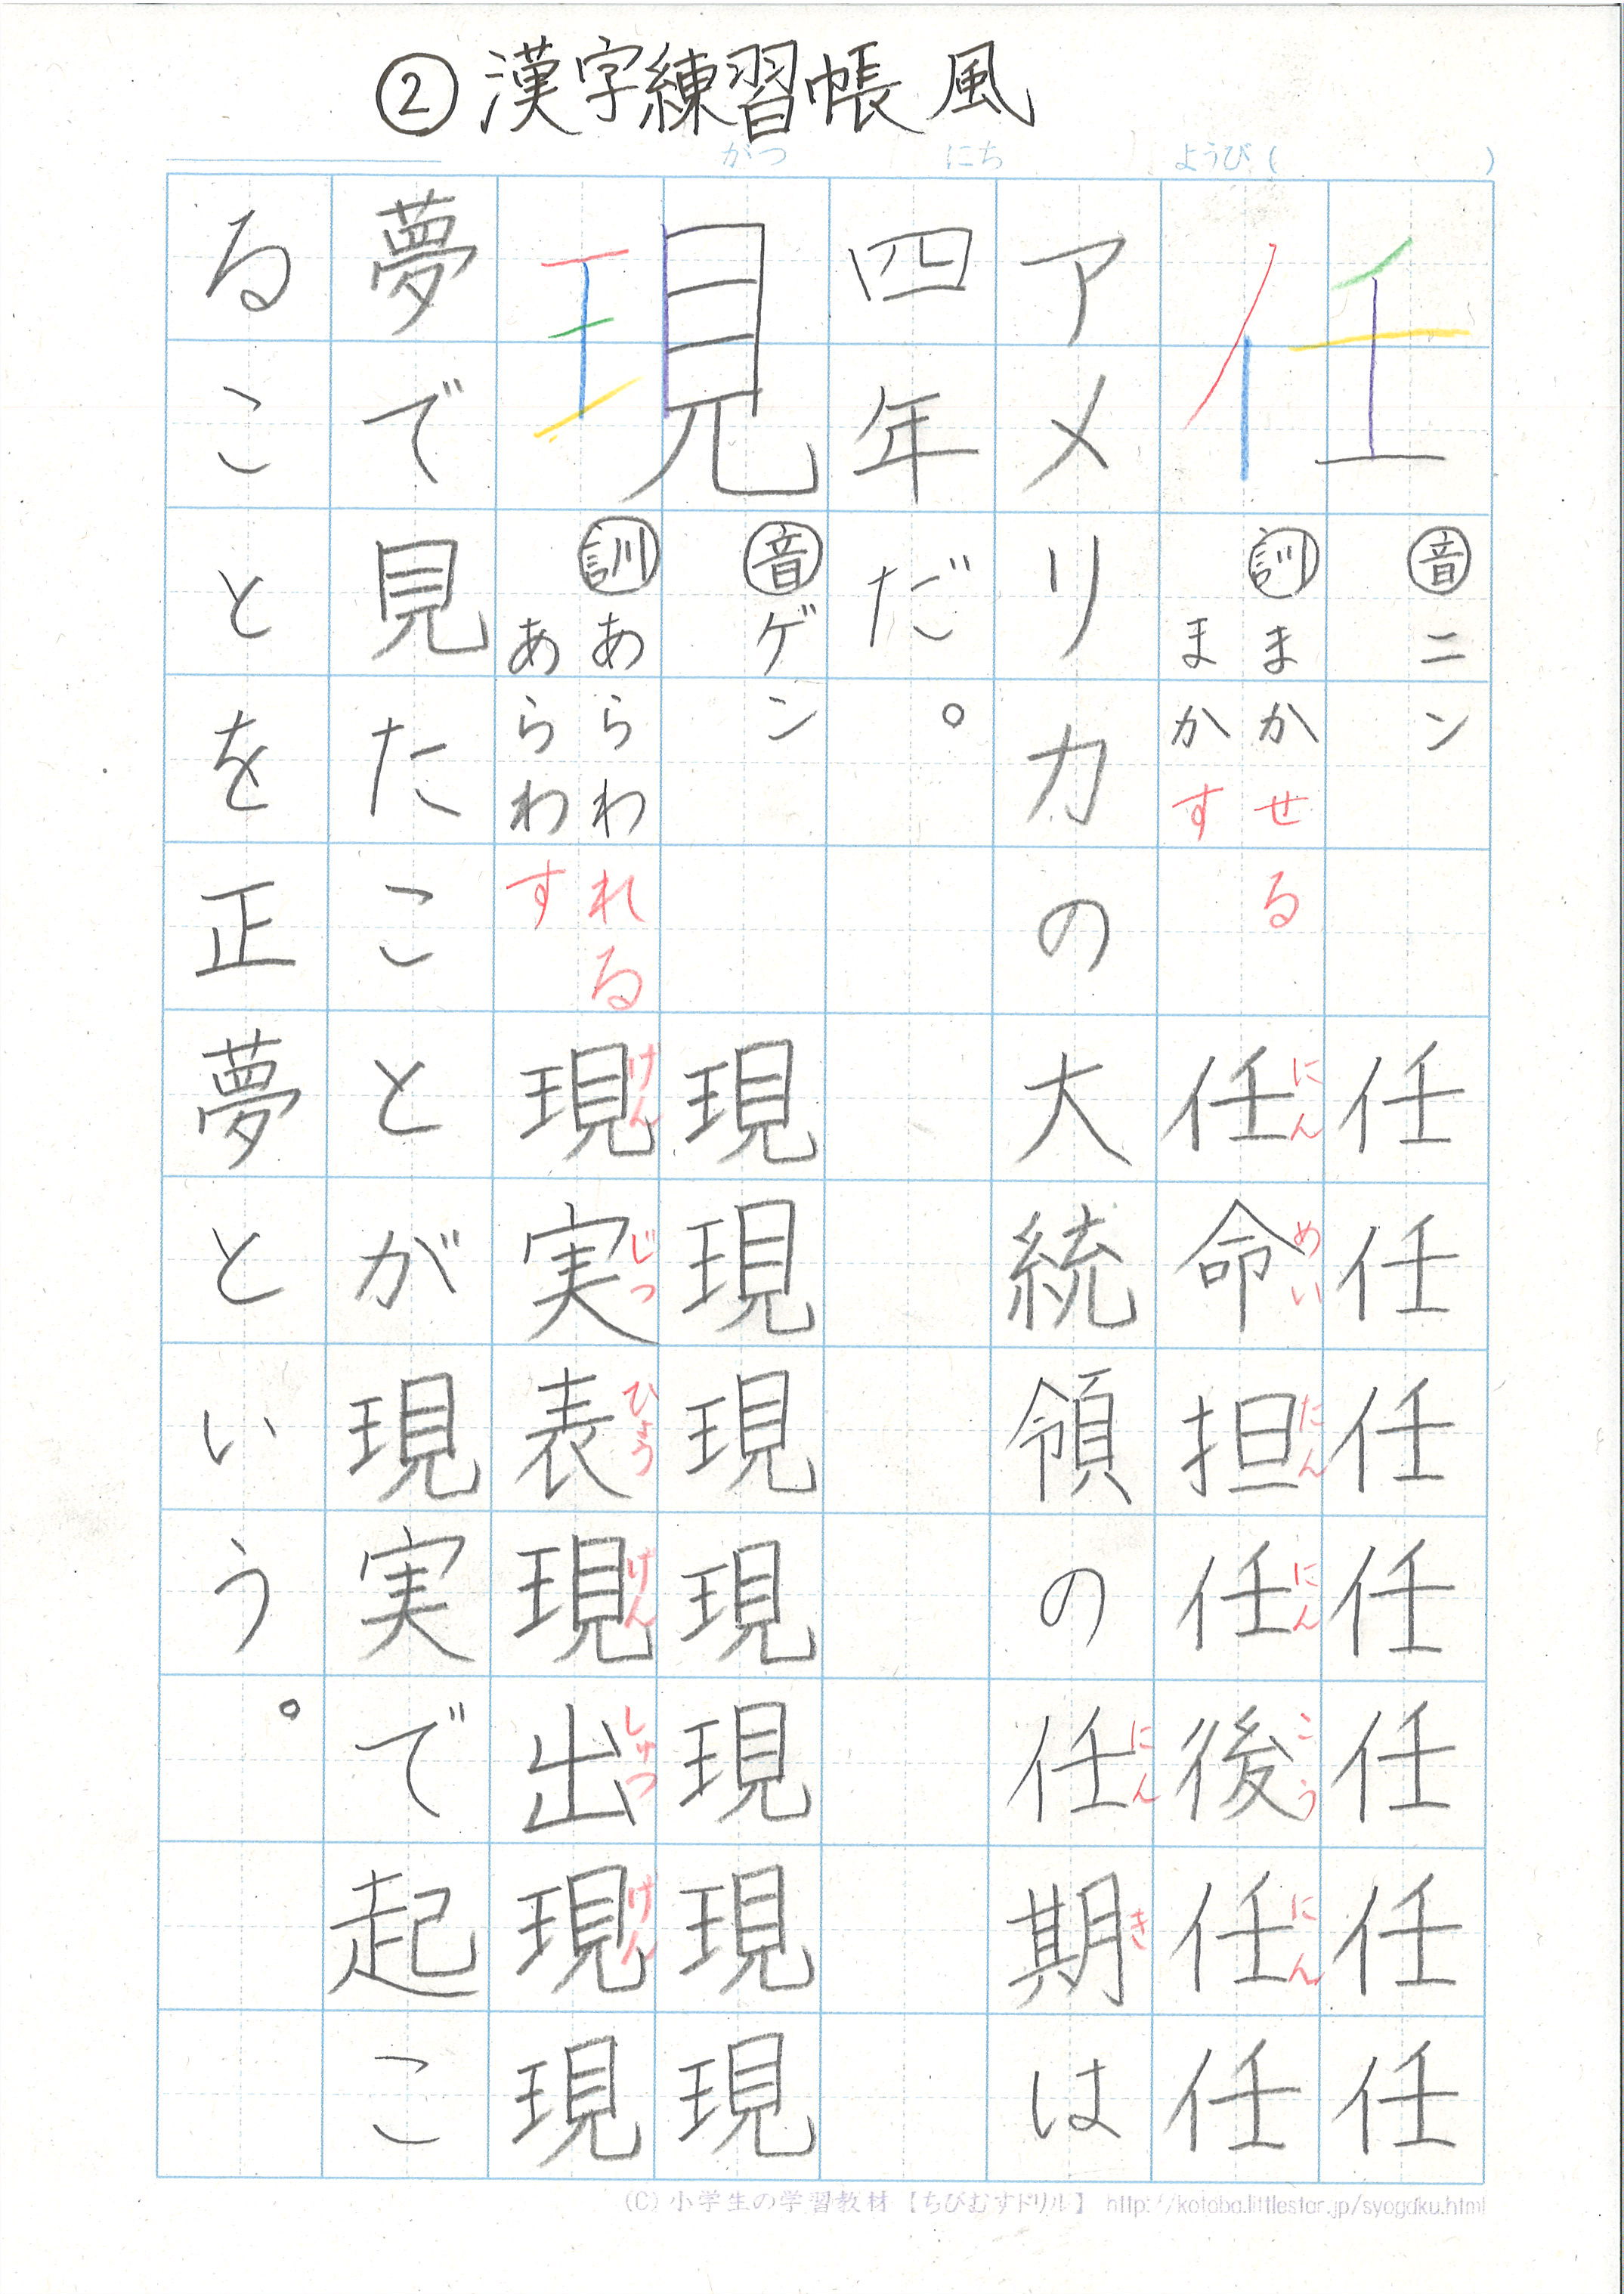 ②漢字練習帳風
がつ にち ようび( )
任
音ニン
任任任任任任任
訓まかせる
まかす
任命担任後任任
にんめいたんにんこうにん
アメリカの大統領の任期は
にんき
四年だ。
現
音ゲン
現現現現現現現
訓あらわれる
あらわす
現実表現出現現
げんじつひょうげんしゅつげん
夢で見たことが現実で起こ
ることを正夢という。
(C)小学生の学習教材【ちびむすドリル】 http://kotoba.littlestar.jp/syogaku.html